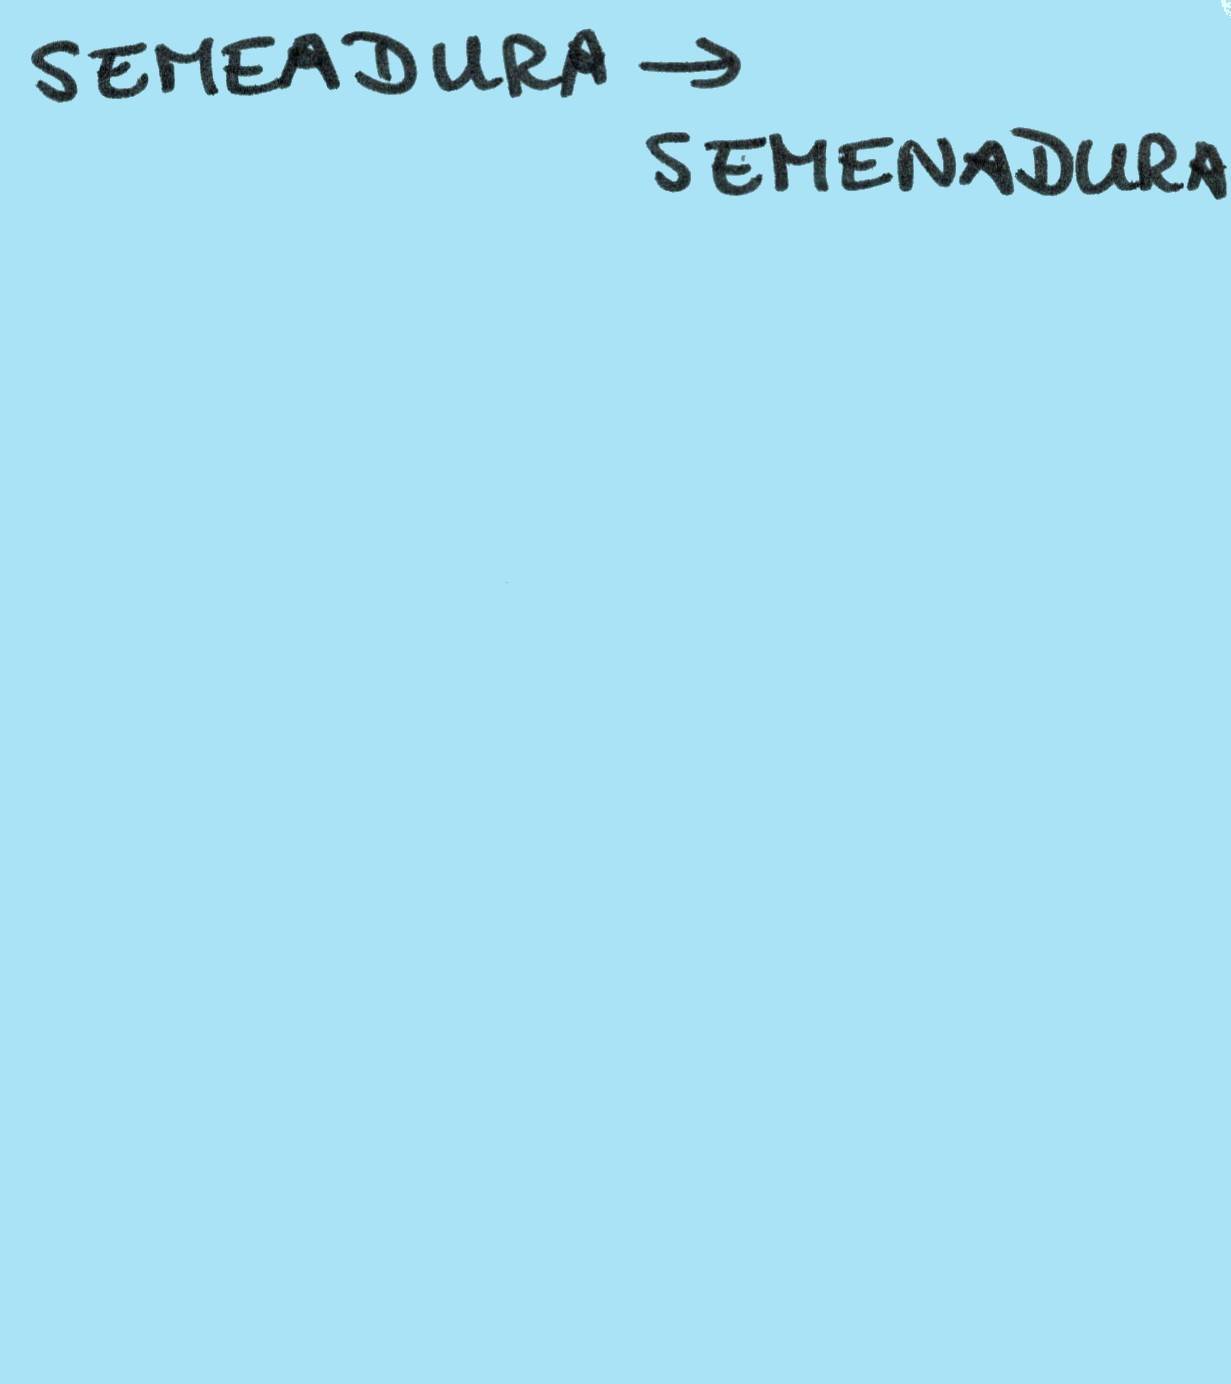 SEMEADURA →
SEMENADURA